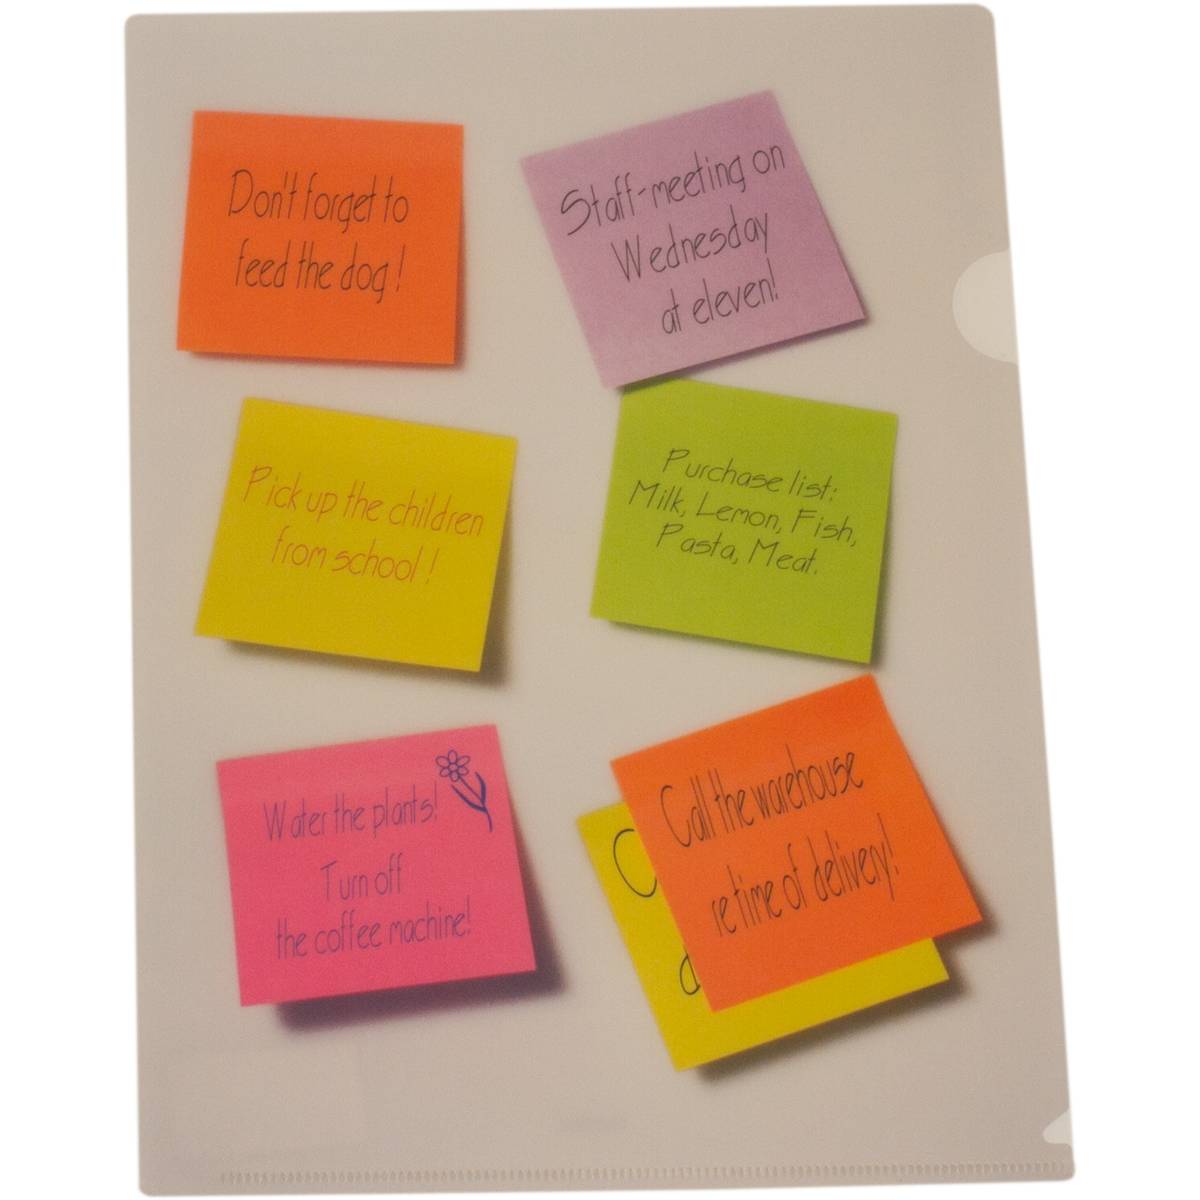 Don't forget to
feed the dog!
Staff-meeting on
Wednesday
at eleven!
Pick up the children
from school!
Purchase list:
Milk, Lemon, Fish,
Pasta, Meat.
Water the plants!
Turn off
the coffee machine!
Call the warehouse
re time of delivery!